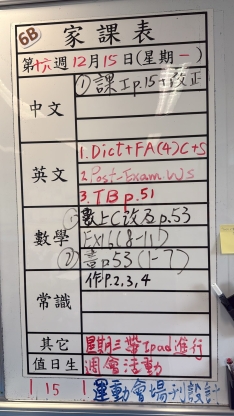 6B 家課表
第十六週 12月15日(星期一)
中文 ①課I p.15+改正
英文 1. Dict+FA(4)C+S
2. Post-Exam WS
3. TB p.51
數學 ①數上C p.53
Ex16(8-11)
② p53(1-7)
常識 作P.2,3,4
其它 星期三帶Ipad進行
值日生 週會活動
1 15 1 運動會場刊設計